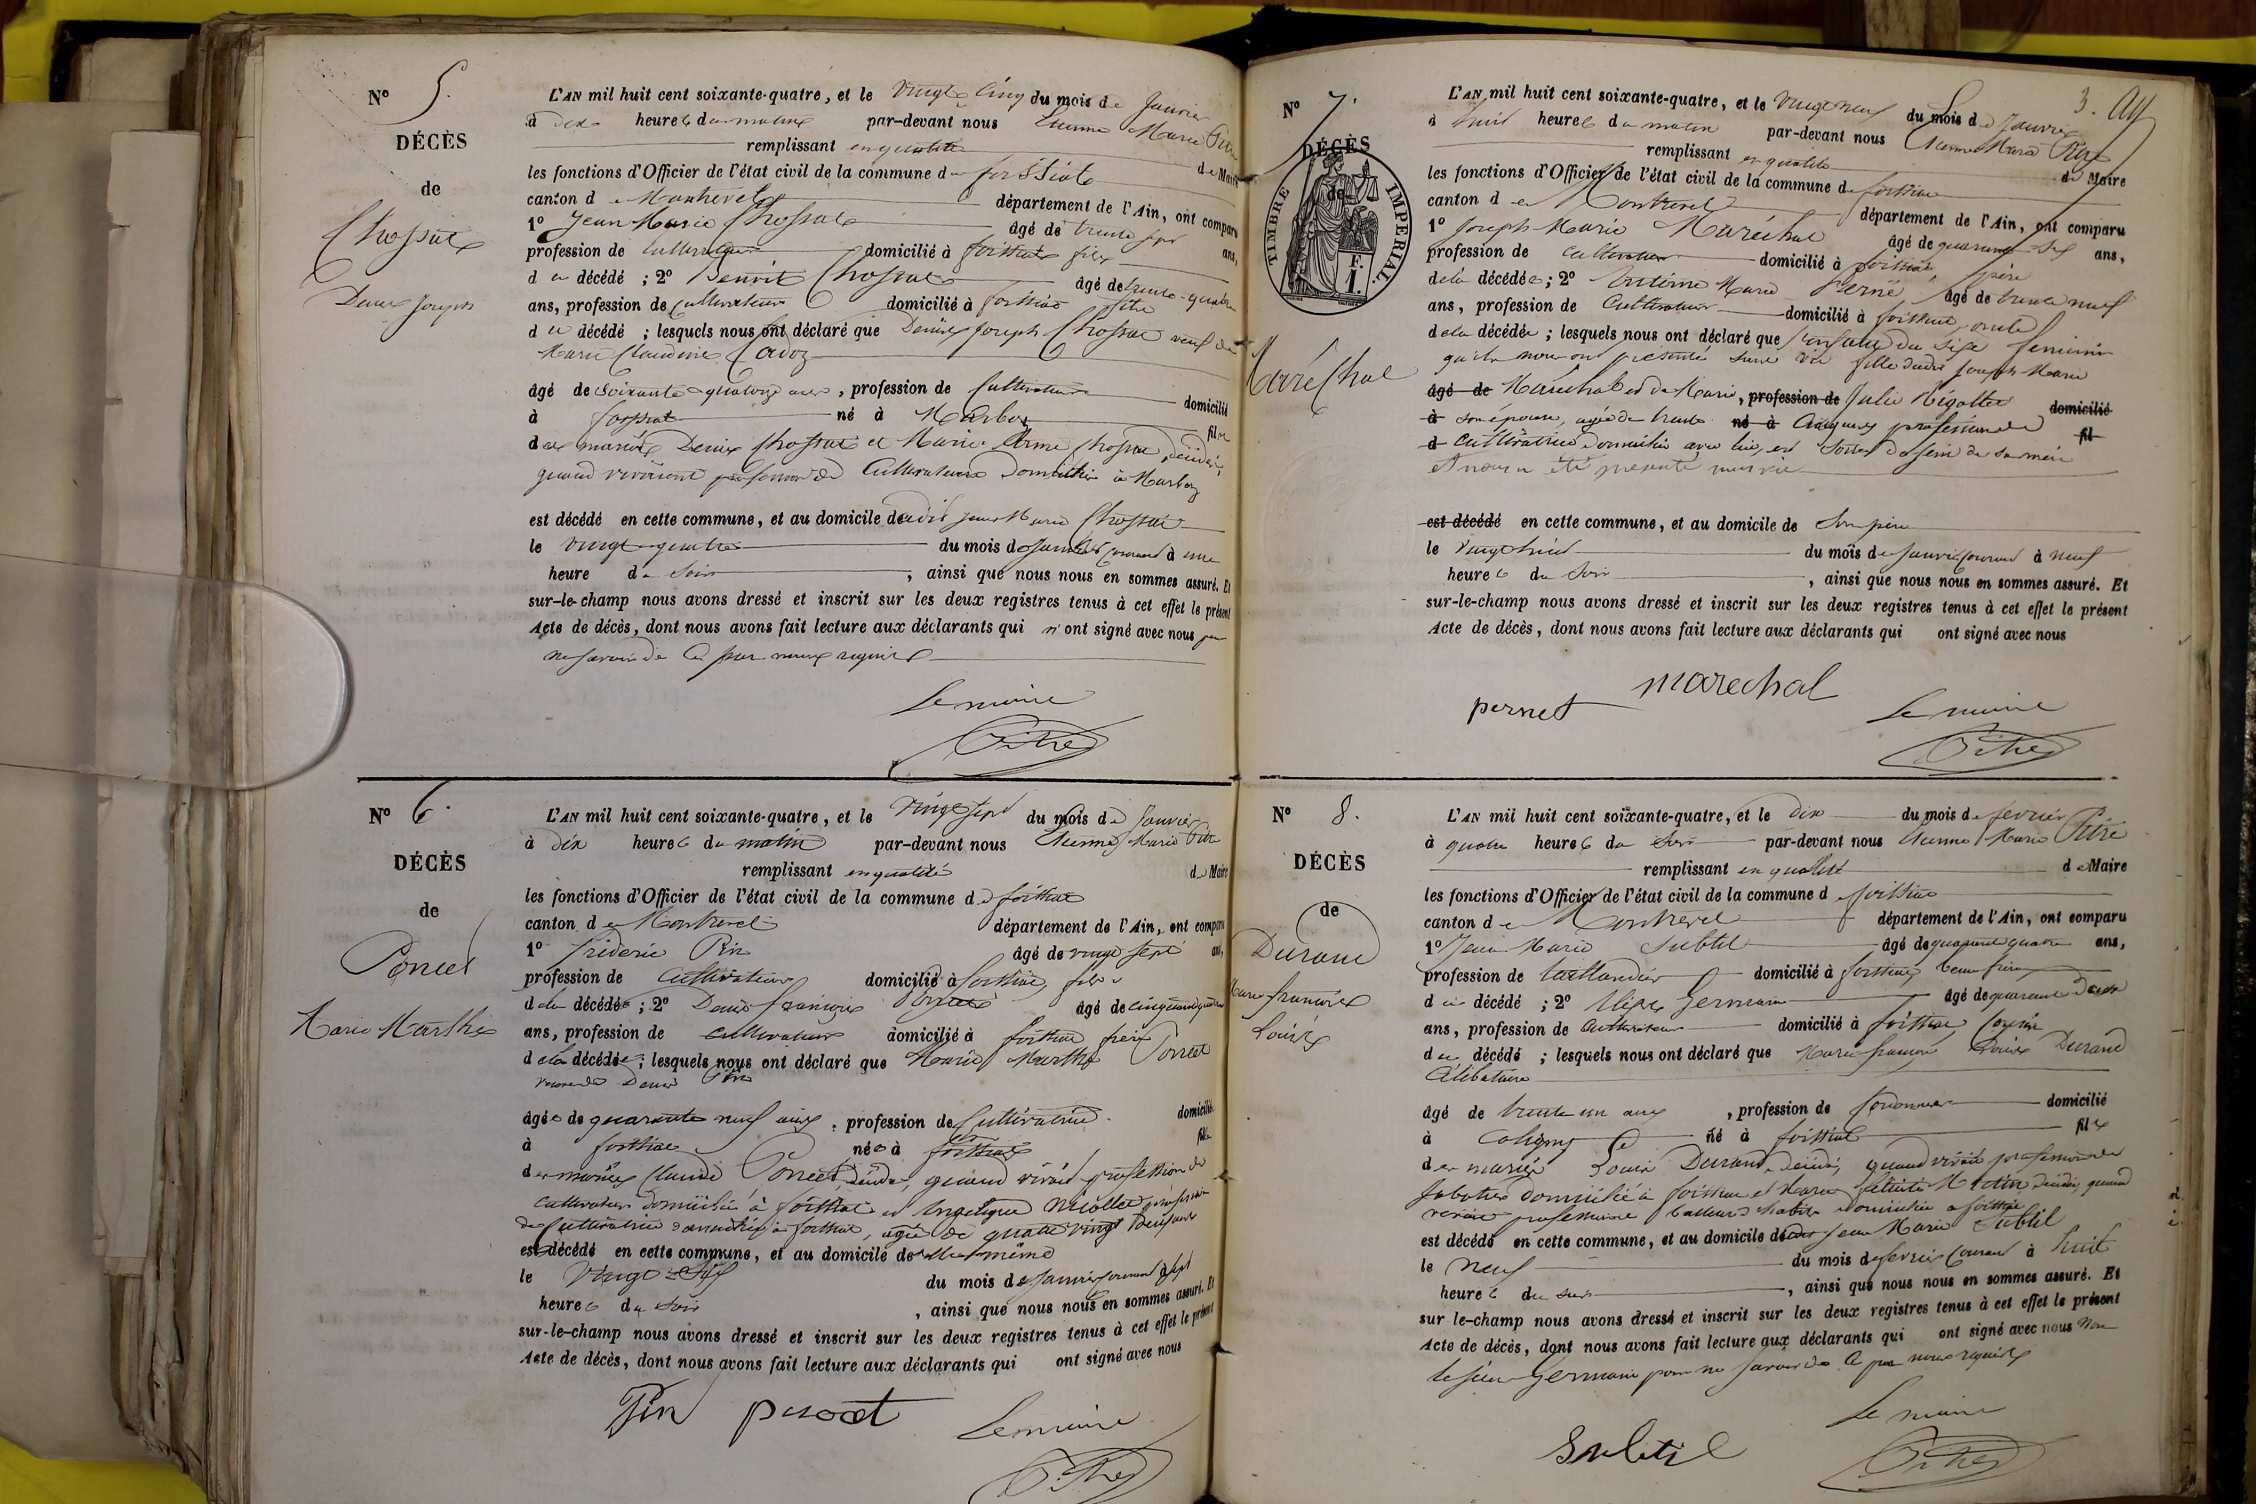 N° 5.
DÉCÈS
de
Chossat
Denis Joseph
L'AN mil huit cent soixante-quatre, et le vingt cinq du mois de Janvier
à dix heures du matin par-devant nous Etienne Marie Pitre
remplissant en qualité de Maire
les fonctions d'Officier de l'état civil de la commune de
canton de Montrevel département de l'Ain, ont comparu
1° Jean Marie Chossat âgé de trente sept ans,
profession de cultivateur domicilié à foissiat fils
du décédé ; 2° Benoit Chossat âgé de trente-quatre
ans, profession de Cultivateur domicilié à foissiat
du décédé ; lesquels nous ont déclaré que Denis Joseph Chossat veuf de
Marie Claudine Cadoz
âgé de Soixante quatorze ans, profession de Cultivateur domicilié
à né à Marboz fils
des mariés Denis Chossat et Marie Anne Chossat, décédés,
quand vivaient profession de Cultivateurs domiciliés à Marboz
est décédé en cette commune, et au domicile dudit Jean Marie Chossat
le vingt-quatre du mois de Janvier courant à une
heure du soir, ainsi que nous nous en sommes assuré. Et
sur-le-champ nous avons dressé et inscrit sur les deux registres tenus à cet effet le présent
Acte de décès, dont nous avons fait lecture aux déclarants qui n'ont signé avec nous pour
ne savoir de ce par nous requis
Le maire
Pitre
N° 6.
DÉCÈS
de
Poncet
Marie Marthe
L'AN mil huit cent soixante-quatre, et le vingt sept du mois de Janvier
à dix heures du matin par-devant nous Etienne Marie Pitre
remplissant en qualité de Maire
les fonctions d'Officier de l'état civil de la commune de foissiat
canton de Montrevel département de l'Ain, ont comparu
1° Frédéric Pin âgé de vingt sept ans,
profession de Cultivateur domicilié à foissiat, fils
de la décédée ; 2° Denis François Poncet âgé de cinquante quatre
ans, profession de cultivateur domicilié à foissiat frère
de la décédée ; lesquels nous ont déclaré que Marie Marthe Poncet
veuve de Denis Pin
âgée de quarante neuf ans, profession de Cultivatrice domiciliée
à foissiat née à foissiat fille
des mariés Claude Poncet, décédé, quand vivait profession de
cultivateur domicilié à foissiat et Angélique Nicollet profession
de Cultivatrice domiciliée à foissiat, agée de quatre vingt
est décédé en cette commune, et au domicile de elle même
le vingt-six du mois de Janvier courant à sept
heures du soir, ainsi que nous nous en sommes assuré. Et
sur-le-champ nous avons dressé et inscrit sur les deux registres tenus à cet effet le présent
Acte de décès, dont nous avons fait lecture aux déclarants qui ont signé avec nous
Pin
Le maire
Pitre
3.
N° 7.
DÉCÈS
de
TIMBRE IMPERIAL.
F.
1.
Maréchal
L'AN mil huit cent soixante-quatre, et le vingt neuf du mois de Janvier
à huit heures du matin par-devant nous Etienne Marie Pitre
remplissant en qualité de Maire
les fonctions d'Officier de l'état civil de la commune de foissiat
canton de Montrevel département de l'Ain, ont comparu
1° Joseph Marie Maréchal âgé de quarante ans,
profession de Cultivateur domicilié à foissiat, père
de la décédée ; 2° Antoine Marie âgé de trente neuf
ans, profession de Cultivateur domicilié à foissiat oncle
de la décédée ; lesquels nous ont déclaré que l'enfant du sexe féminin
qu'ils nous ont présenté sans vie fille dudit Joseph Marie
âgé de Maréchal et de Marie, profession de Julie domicilié
à son épouse, agée de trente né à cinq ans, profession de fil
d cultivatrice domiciliée avec lui, est sorti du sein de sa mère
et nous a été présenté sans vie
est décédé en cette commune, et au domicile de son père
le vingt huit du mois de Janvier courant à neuf
heures du soir, ainsi que nous nous en sommes assuré. Et
sur-le-champ nous avons dressé et inscrit sur les deux registres tenus à cet effet le présent
Acte de décès, dont nous avons fait lecture aux déclarants qui ont signé avec nous
pernet marechal
Le maire
Pitre
N° 8.
DÉCÈS
de
Durand
Marie françois
Louis
L'AN mil huit cent soixante-quatre, et le dix du mois de fevrier
à quatre heures du soir par-devant nous Etienne Marie Pitre
remplissant en qualité de Maire
les fonctions d'Officier de l'état civil de la commune de foissiat
canton de Montrevel département de l'Ain, ont comparu
1° Jean Marie Subtil âgé de quarante quatre ans,
profession de taillandier domicilié à foissiat, beau frère
du décédé ; 2° Germain âgé de quarante deux
ans, profession de cultivateur domicilié à foissiat, Cousin
du décédé ; lesquels nous ont déclaré que Marie françois Louis Durand
Célibataire
âgé de trente un ans, profession de domicilié
à Coligny né à foissiat fils
des mariés Louis Durand, décédé, quand vivait profession de
Sabotier domicilié à foissiat et Marie décédée, quand
vivait profession de domiciliée à foissiat
est décédé en cette commune, et au domicile dudit Jean Marie Subtil
le neuf du mois de fevrier courant à huit
heures du soir, ainsi que nous nous en sommes assuré. Et
sur le-champ nous avons dressé et inscrit sur les deux registres tenus à cet effet le présent
Acte de décès, dont nous avons fait lecture aux déclarants qui ont signé avec nous non
le sieur Germain pour ne savoir de ce par nous requis
Le maire
Subtil
Pitre